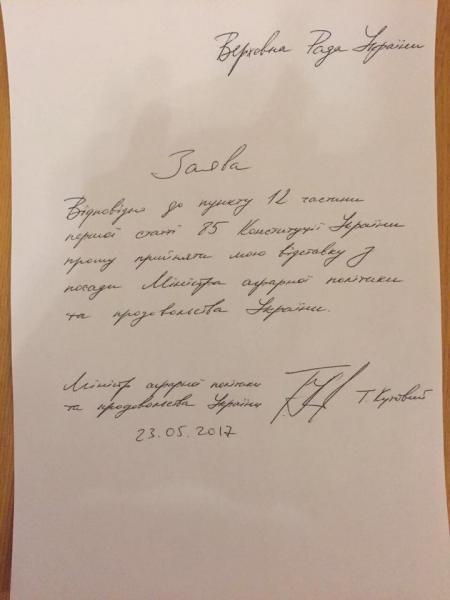 Верховна Рада України
Заява
Відповідно до пункту 12 частини
першої статі 85 Конституції України
прошу прийняти мою відставку з
посади Міністра аграрної політики
та продовольства України.
Міністр аграрної політики
та продовольства України Т. Кутовий
23.05.2017